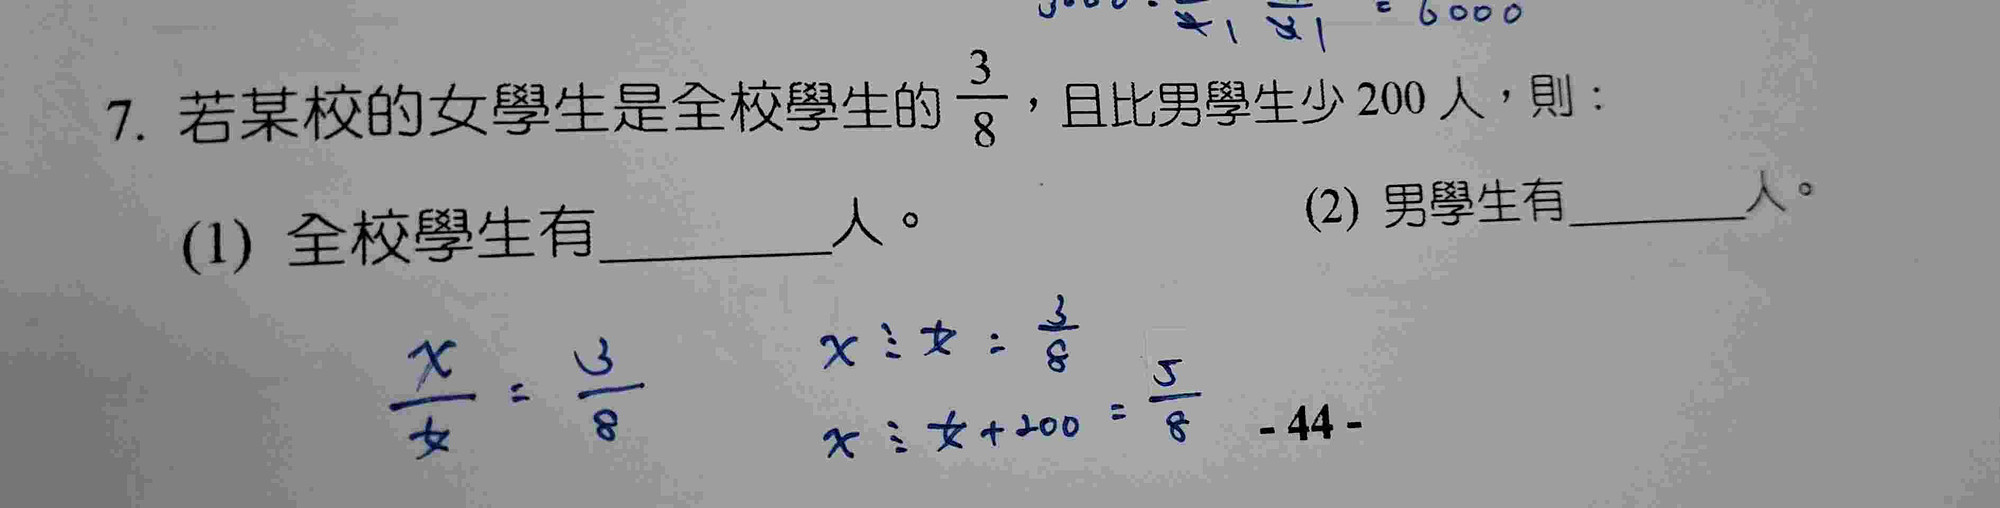 = 6000
7. 若某校的女學生是全校學生的 3/8，且比男學生少 200 人，則：
(1) 全校學生有________人。 (2) 男學生有______人。
x/女 = 3/8
x ÷ 女 = 3/8
x ÷ 女 + 200 = 5/8
- 44 -